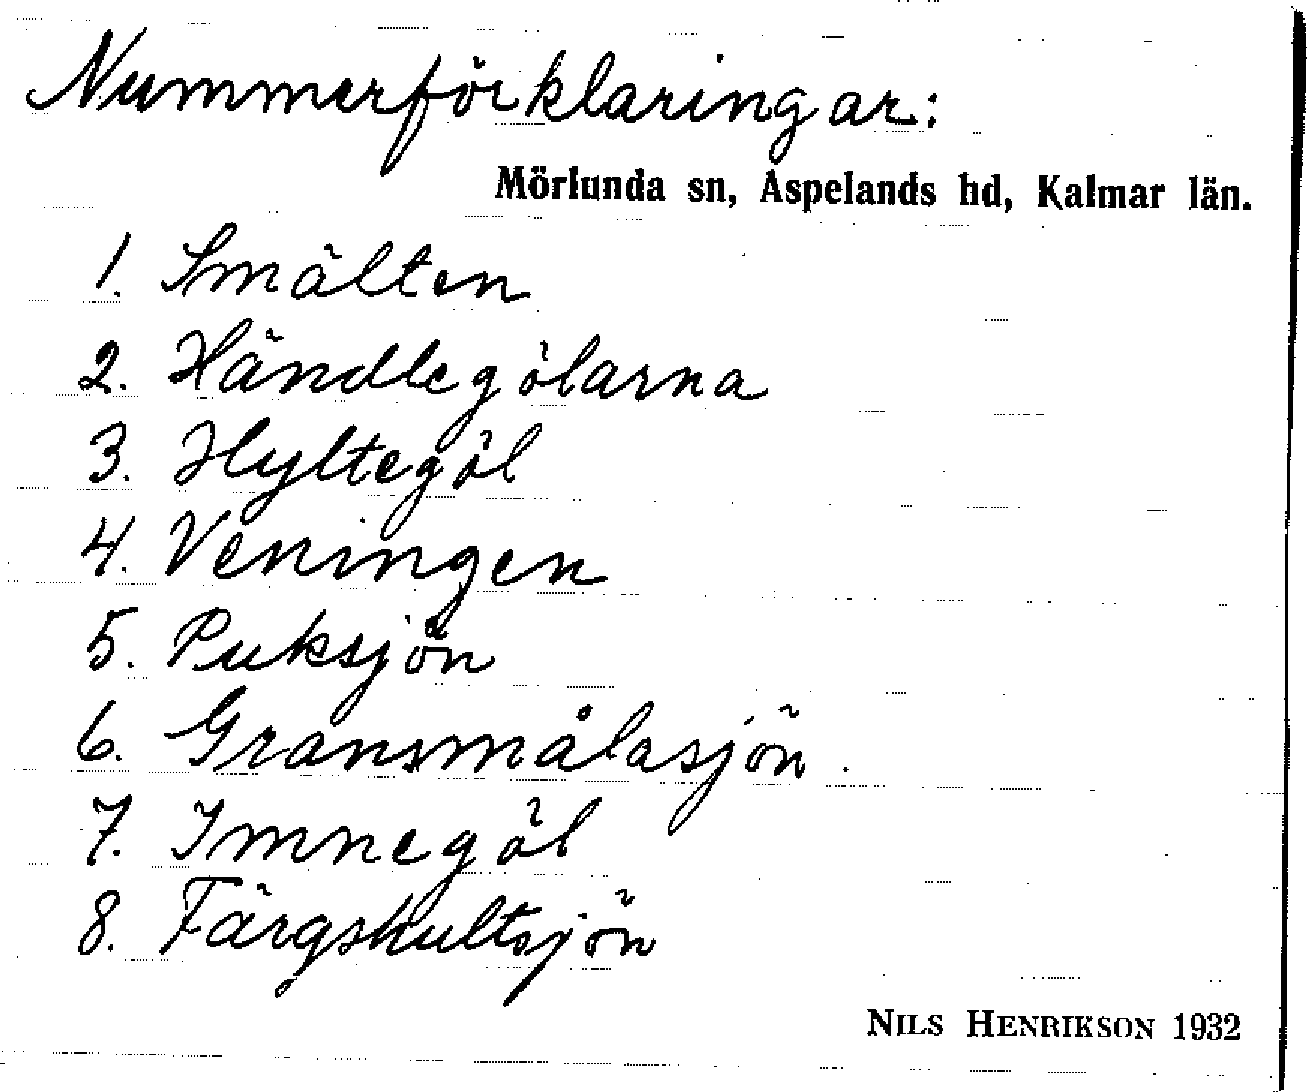 Nummerförklaringar:
Mörlunda sn, Aspelands hd, Kalmar län.
1. Smälten
2. Händlegölarna
3. Hyltegöl
4. Veningen
5. Puksjön
6. Gransmålasjön.
7. Imnegöl
8. Färgshultsjön
NILS HENRIKSON 1932